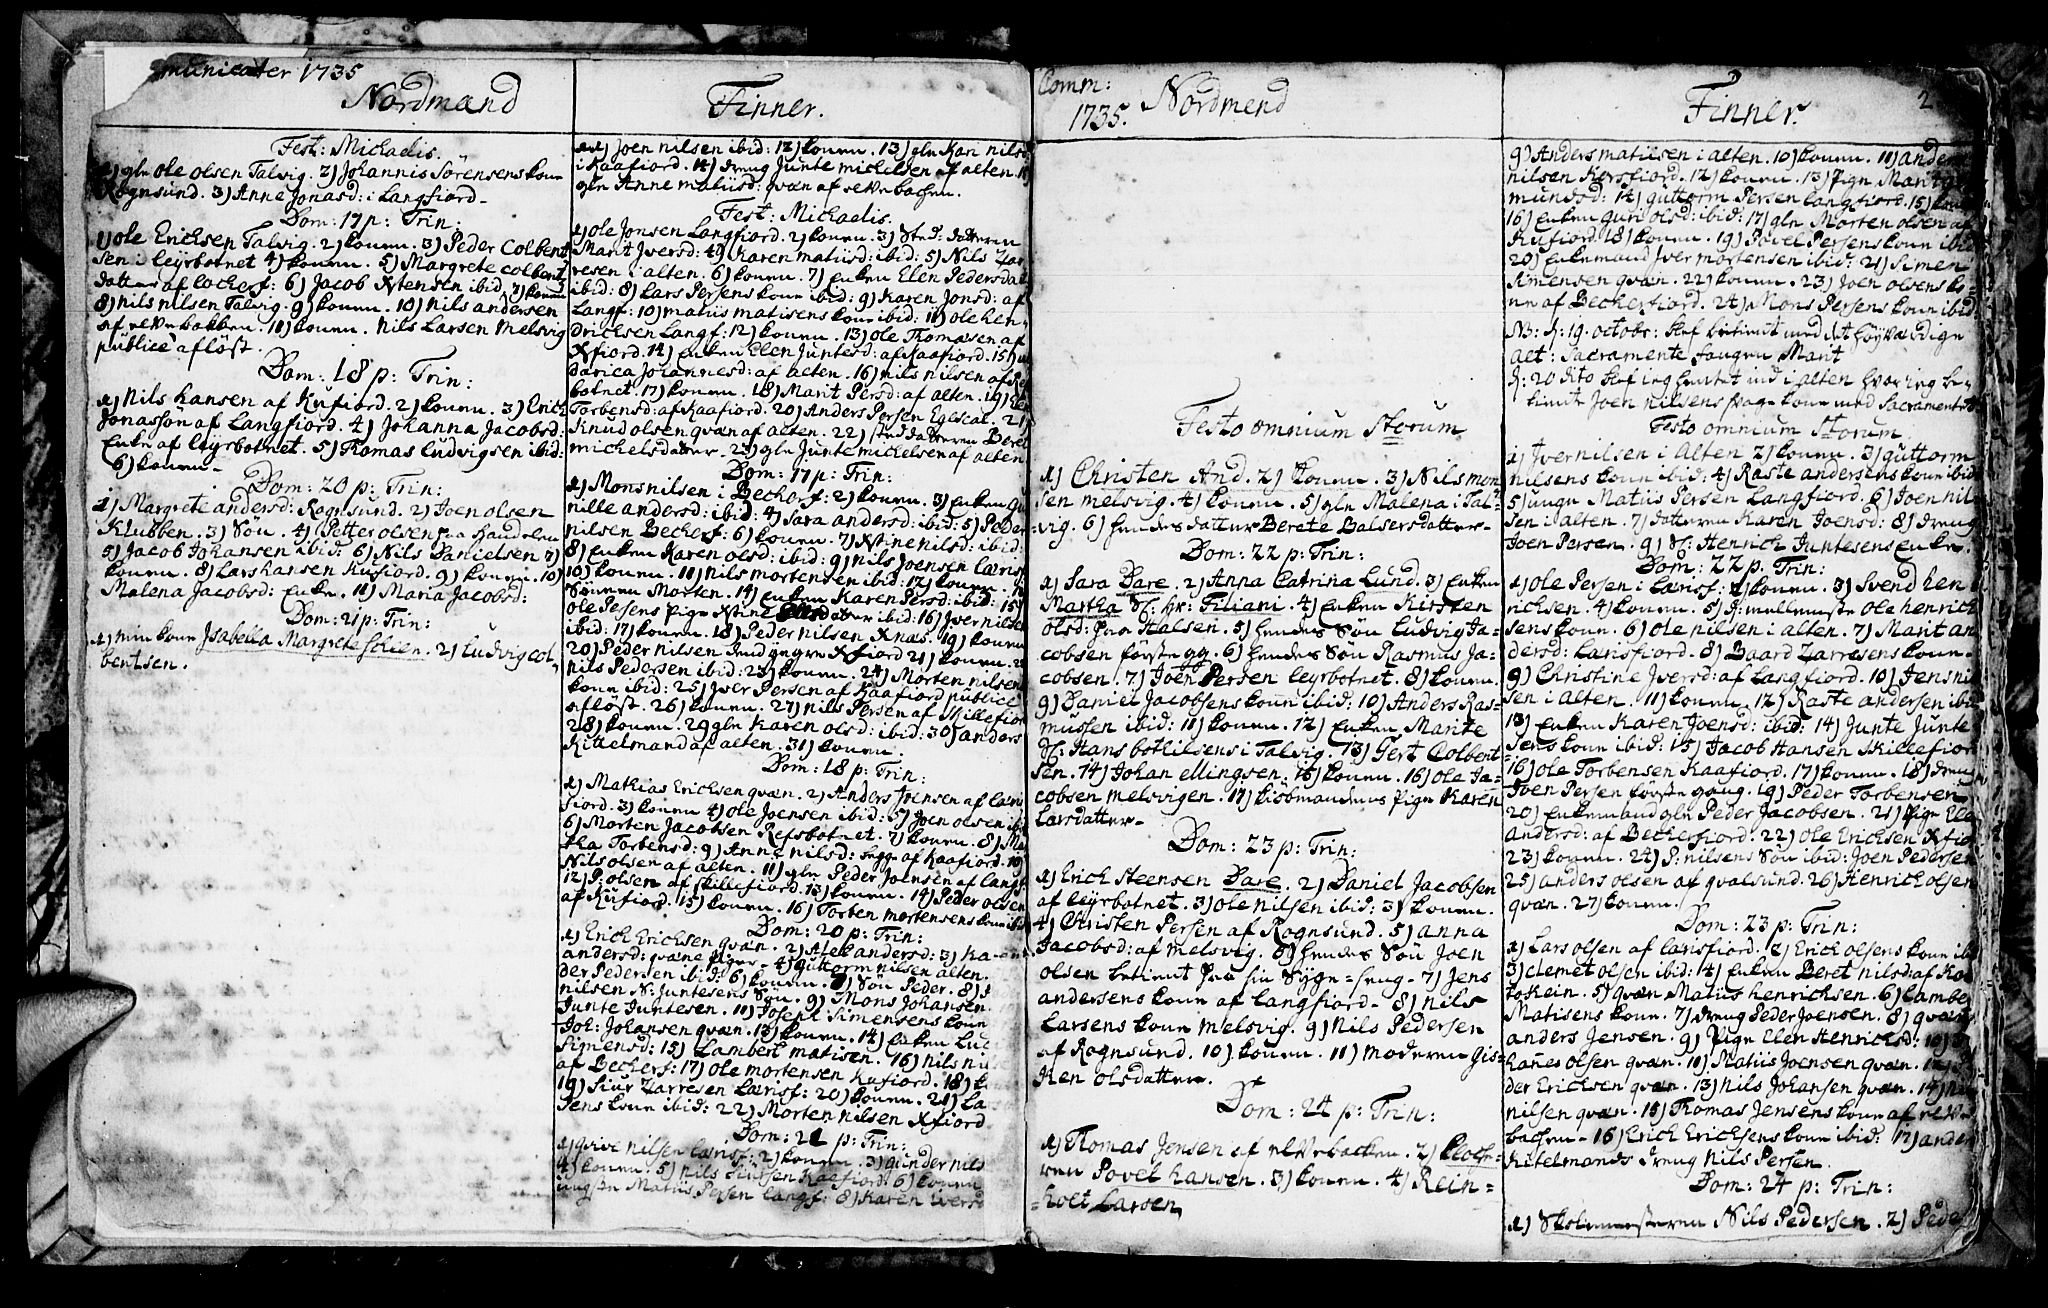 municater 1735
Nordmænd
Fest: Michaelis.
1) gln ole olsen Talvig. 2) Johannis Sörensens kone
Rognsund. 3) Anne Jonasd: i Langfiord
Dom: 17 p: Trin:
1) ole Erichsen Talvig. 2) konen. 3) Peder Colbent
sen i leyrbotnet 4) konen. 5) Margrete Colbent
datter af Cockerf: 6) Jacob Xtensen ibid. 7) konen
8) nils nilsen Talvig. 9) konen. 10) nils andersen
af elvebakken. 11) konen. Nils Larsen Melsvig
publicè afløst.
Dom: 18 p: Trin:
1) Nils hansen af Kufiord. 2) konen. 3) Erich
Jonassøn af Langfiord. 4) Johanna Jacobsd:
Enke af leyrbotnet. 5) Thomas ludvigsen ibid:
6) konen
Dom: 20 p: Trin:
1) Margrete andersd: Rognsund. 2) Joen olsen
Klubben. 3) Søn. 4) Petter olsen paa handelen
5) Jacob Johansen ibid: 6) Nils Danielsen 7)
konen. 8) Lars hansen Kufiord. 9) konen. 10)
Malena Jacobsd: Enke. 11) Maria Jacobsd:
Dom: 21 p: Trin:
1) min kone Isabella Margrete 2) ludvig col
bentsen.
Finner.
11) Joen nilsen ibid: 12) konen. 13) gln Kari nilsd
i Kaafiord. 14) dreng Junte michelsen af alten. 15)
gln Anne matiisd: qvæn af elvebachen.
Fest: Michaelis.
1) ole Jonsen Langfiord. 2) konen. 3) Sted: datteren
Marit Jversd: 4) Karen matiisd: ibid: 5) Nils Zar
resen i alten. 6) konen. 7) Enken Elen Pedersdat
ibid: 8) Lars Persens kone ibid: 9) Karen Jonsd: af
Langf: 10) matiis matisens kone ibid: 11) ole hen
drichsen Langf: 12) konen. 13) ole Thomæsen af
Xfiord. 14) Enken Elen Juntesd: af Kaafiord. 15)
darica Johannesd: af alten. 16) nils nilsen af Ref
botnet. 17) konen. 18) Marit Persd: af alten. 19) Elen
Torbensd: af Kaafiord. 20) Anders Persen Egescal. 21)
Knud olsen qvæn af alten. 22) steddatteren Beret
michelsdatter. 23) gln Junte michelsen af alten
Dom: 17 p: Trin:
1) Mons nilsen i Beckerf: 2) konen. 3) Enken Gu
nille andersd: ibid: 4) Sara andersd: ibid: 5) Peder
nilsen Beckerf: 6) konen. 7) Xstine nilsd: ibid:
8) Enken Karen olsd: ibid: 9) nils Joensen Lærisf:
10) konen. 11) nils mortensen ibid: 12) konen. 13)
Sønnen Morten. 14) Enken Karen Persd: ibid: 15)
ole Persens pige Xstine datter ibid: 16) Jver nilsen
ibid: 17) konen. 18) Peder nilsen Xnæs. 19) konen
20) Peder nilsen Xfiord 21) konen. 22
nils Pedersen ibid: 23) konen. 24) Morten nilsens
kone ibid: 25) Jver Persen af Kaafiord publicè
afløst. 26) konen. 27) nils Persen af Skillefior
28) konen. 29 gln Karen olsd: ibid: 30) anders
Kittelmand af alten. 31) konen.
Dom: 18 p: Trin:
1) Mathias Erichsen qvæn. 2) Anders Joensen af Læris
fiord. 3) konen 4) ole Joensen ibid: 5) Joen olsen ibid
6) Morten Jacobsen Refsbotnet. 7) konen. 8) Ma
tha Torbensd: 9) Anne nilsd: begge af Kaafiord. 10)
Nils olsen af alten. 11) gln Peder Joensen af Langf
12) P: olsen af skillefiord. 13) konen. 14) Peder olsen
af Kufiord. 15) konen. 16) Torben mortensens kone ibid
Dom: 20 p: Trin:
1) Erich Erichsen qvæn. 2) Alet andersd: 3) Ka
andersd: qvæne piger. 4) Guttorm nilsen alten.
der Pedersen ibid: 6) konen. 7) Søn Peder. 8)
nilsen N: Juntesens Søn. 9) Mons Johansen.
Junte Juntesen. 11) Joseph Simensens kone
Joh: Johansen qvæn. 13) konen. 14) Enken Luci
Simensd: 15) Lambert matisen. 16) Nils ni
af Beckerf: 17) ole mortensen Kufiord. 18)
19) Siur Zarresen Lærisf: 20) konen. 21) La
sens kone ibid: 22) Morten nilsen Xfiord
Dom: 21 p: Trin:
1) qvive nilsen lærisf: 2) konen. 3) gunder nils
4) konen. 5) nils Kaafiord. 6) konen
ungste Matiis Persen langf: 8) Karen Wers
Comm:
1735. Nordmend
Festo omnium Storum
1) Christen And. 2) konen. 3) Nils mon
sen melsvig. 4) konen. 5) gln Malena i Tal
vig. 6) hendes datter Berete Balsersdatter
Dom: 22 p: Trin:
1) Sara Dare. 2) Anna Catrina Lund. 3) Enken
Martha Sl: hr: Filiani. 4) Enken Kirsten
olsd: paa Halsen. 5) hendes Søn Ludvig Ja
cobsen første gg. 6) hendes Søn Rasmus Ja
cobsen. 7) Joen Persen leyrbotnet. 8) konen.
9) Daniel Jacobsens kone ibid: 10) Anders Ras
mussen ibid: 11) konen. 12) Enken Marite
Sl: Hans bothilsens i Talvig. 13) Gert Colbent
sen. 14) Johan ellingsen. 15) konen. 16) ole Ja
cobsen melsvigen. 17) kiøbmandens pige Karen
Larsdatter
Dom: 23 p: Trin:
1) Erich Steensen Dare. 2) Daniel Jacobsen
af leyrbotnet. 3) ole nilsen ibid: 3) konen.
4) Christen Persen af Rognsund. 5) anna
Jacobsd: af melsvig. 6) hendes Søn Joen
olsen betient paa sin Syge-seng. 7) Jens
andersens kone af Langfiord. 8) Nils
Larsens kone melsvig. 9) Nils Pedersen
af Rognsund. 10) konen. 11) moderen Gis
ken olsdatter.
Dom: 24 p: Trin:
1) Thomas Jonsen af elvebacken. 2) Klocke
ren Povel hansen. 3) konen. 4) Rein
holt Larsen
2
Finner.
9) Anders matiisen i alten. 10) konen. 11) anders
nilsen Korsfiord. 12) konen. 13) Pign Marit
mundsd: 14) guttorm Persen Langfiord. 15) konen
16) Enken guri olsd: ibid: 17) gln Morten olsen af
Kufiord. 18) konen. 19) Povel Persens kone ibid
20) Enkemand Jver mortensen ibid: 21) Simen
Simensen qvæn. 22) konen. 23) Joen olsens ko
ne af Beckerfiord. 24) Mons Persens kone ibid:
NB: d: 19 octobr: blef betient med det høyværdige
alt: Sacramente fangen Marit
d: 20 dito blef ieg hentet ind i alten hvor ieg be
tiente Joen nilsens svage kone med Sacramentet
Festo omnium Storum
1) Jver nilsen i alten 2) konen. 3) guttorm
nilsens kone ibid: 4) Raste andersens kone ibid
5) unge Matiis Persen Langfiord. 6) Joen nil
sen i alten. 7) datteren Karen Joensd: 8) dreng
Joen Persen. 9) Sl: Henrich Juntesens enke.
Dom: 22 p: Trin:
1) ole Persen i Lærisf: 2) konen. 3) Svend hen
richsen. 4) konen. 5) d: mellemste ole henrich
sens kone. 6) ole nilsen i alten. 7) Marit an
dersd: Lærisfiord. 8) Baard Zarresens kone.
9) Christine Jversd: af Langfiord. 10) Jens nil
sen i alten. 11) konen. 12) Raste andersen ibid
13) Enken Karen Joensd: ibid: 14) Junte Junte
sens kone ibid: 15) Jacob Hansen Skillefior
16) ole Torbensen Kaafiord. 17) konen. 18) dreng
Joen Persen første gang. 19) Peder Torbensen
20) Enkemand gln Peder Jacobsen. 21) Pige Ele
andersd: af Beckerfiord. 22) ole Erichsen Xfio
23) konen. 24) P: nilsens Søn ibid: Joen Pedersen
25) anders olsen af qvalsund. 26) Henrich olsen
qvæn. 27) konen.
Dom: 23 p: Trin:
1) Lars olsen af Lærisfiord. 2) Erich olsens kone ibi
3) clemet olsen ibid: 4) Enken Beret nilsd: af Ko
tokein. 5) qvæn Matiis henrichsen. 6) Lambe
Matisens kone. 7) dreng Peder Joensen. 8) qvæn
anders Jensen. 9) Pige Elen Henrichsd: 10)
hañes olsen qvæn. 11) Matiis Joensen qvæn. 12)
der Erichsen qvæn. 13) Nils Johansen qvæn. 14)
nilsen qvæn. 15) Thomas Jensens kone af elve
bachen. 16) Erich Erichsens kone ibid: 17) ander
Kitelmands dreng Nils Persen.
Dom: 24 p: Trin:
1) Skolemesteren Nils Pedersen. 2) Peder